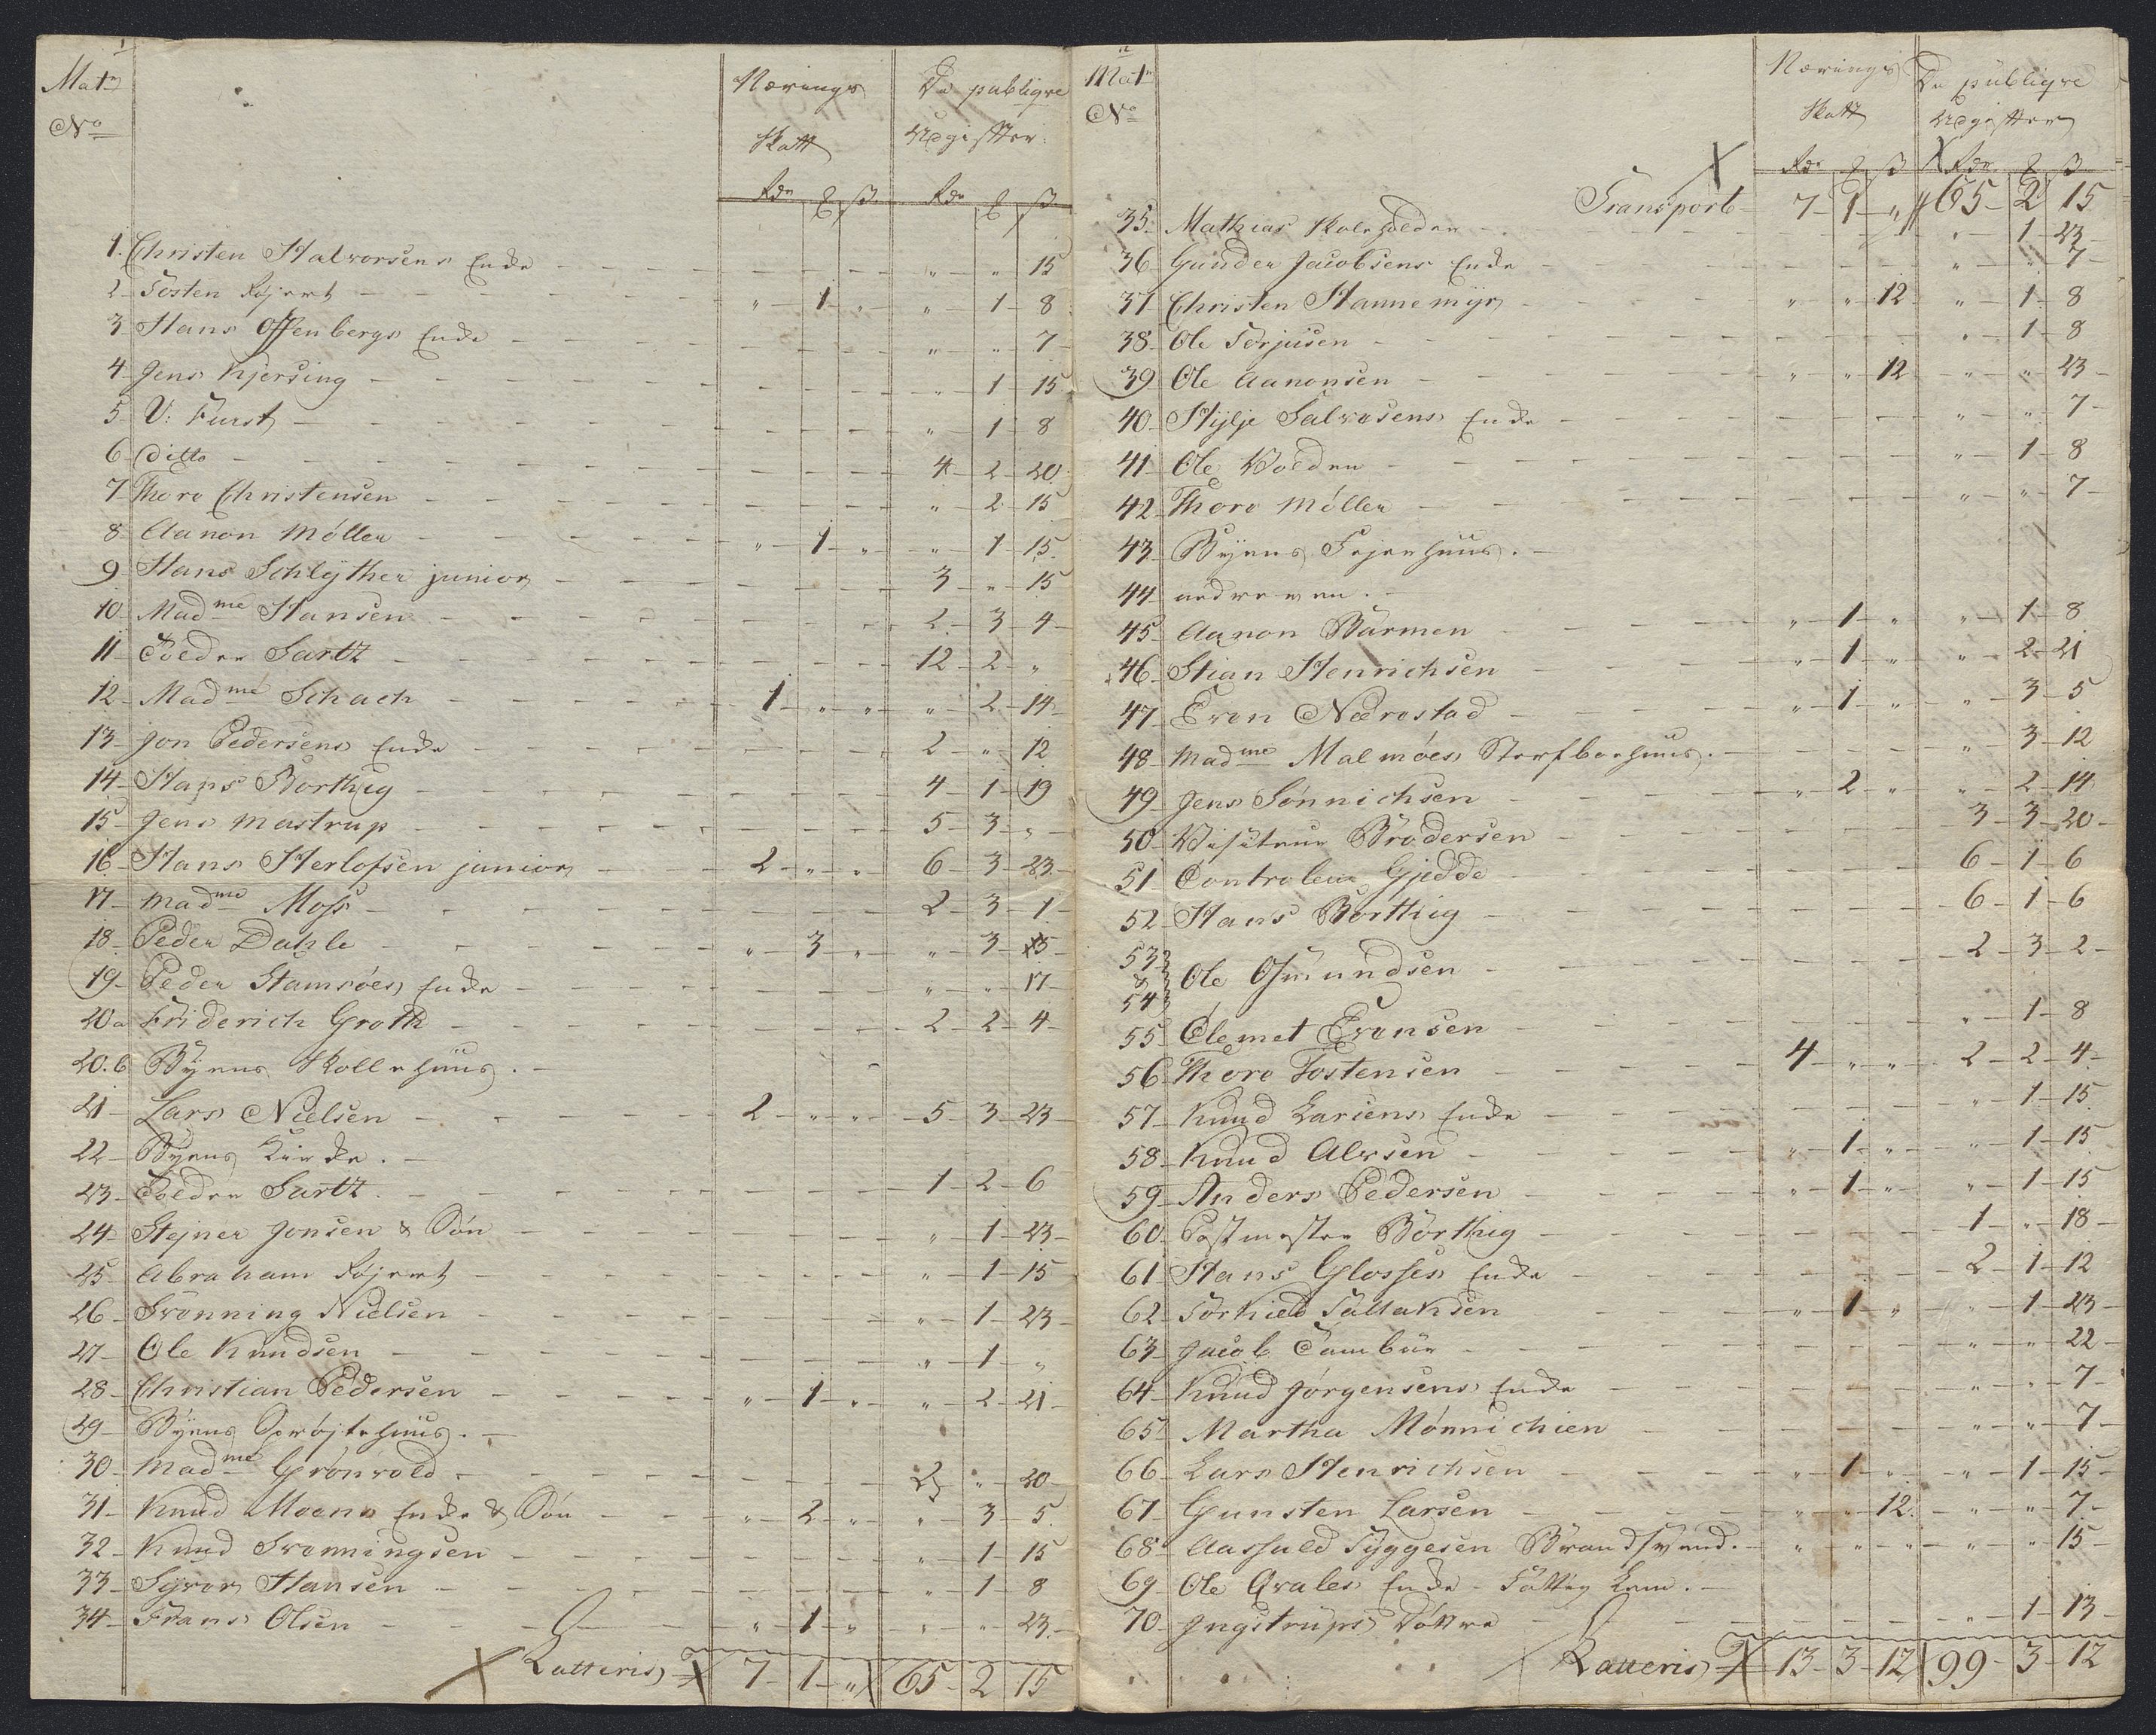 1
Matr
No
Nærings Skatt
De publiqve Udgifter
Rdr ß
Rdr ß
1. Christen Halvorsens Enke - - " " 15
2 Tosten Røjert " 1 " " 1 8
3 Hans Offenbergs Enke " " 7
4 Jens Kjersing " 1 15
5 V: Furst " 1 8
6 Ditto 4 2 20
7 Thore Christensen " 2 15
8 Aanon Møller " 1 " " 1 15
9 Hans Schlÿther junior 3 " 15
10 Madme Hansen 2 3 4
11 Tolder Sartz 12 2 "
12 Madme Schach 1 " " " 2 14
13 Jon Pedersens Enke 2 " 12
14 Hans Borthig 4 1 19
15 Jens Mastrup 5 3 "
16 Hans Herlofsen junior 2 " " 6 3 23
17 Madme Moss 2 3 1
18 Peder Dahle " 3 " " 3 15
19 Peder Stamsøes Enke " " 17
20a Friderich Groth 2 2 4
20.b Byens Skollehuus.
21 Lars Nielsen 2 " " 5 3 23
22 Byens Kirke.
23 Tolder Sartz. 1 2 6
24 Stejner Jonsen & Søn " 1 23
25 Abraham Røjert " 1 15
26 Svenning Nielsen " 1 23
27 Ole Knudsen " 1 "
28 Christian Pedersen " 1 " " 2 21
29 Byens Sprøjtehuus.
30 Madme Grønvold 2 " 20
31 Knud Moens Enke & Søn " 2 " " 3 5
32 Knud Svenningsen " 1 15
33 Syvor Hansen " 1 8
34 Frans Olsen " 1 " " " 23
Latteris 7 1 " 65 2 15
2
Matr
No
Nærings Skatt
De publiqve Udgifter
Rdr ß
Rdr ß
Transport 7 1 " 65 2 15
35 Mathias Skoleholder " 1 23
36 Gunder Jacobsens Enke " " 7
37 Christen Hannemÿr " " 12 " 1 8
38 Ole Terjusen " 1 8
39 Ole Aanonsen " " 12 " " 23
40 Hylje Salvesens Enke " " 7
41 Ole Volden " 1 8
42 Thore Møller " " 7
43 Byens Fejerhuus.
44 nedreven.
45 Aanon Barmen " 1 " " 1 8
46 Stian Henrichsen " 1 " " 2 21
47 Even Nærestad " 1 " " 3 5
48 Madme Malmøes Sterfboehuus. " 3 12
49 Jens Sønnichsen " 2 " " 2 14
50 Visiteur Brodersen 3 3 20
51 Controleur Gjedde 6 1 6
52 Hans Borthig 6 1 6
53 & 54 Ole Osmundsen 2 3 2
55 Clemet Evensen " 1 8
56 Thore Tostensen 4 " " 2 2 4
57 Knud Lariens Enke " 1 15
58 Knud Alvsen " 1 " " 1 15
59 Anders Pedersen " 1 " " 1 15
60 Postmester Borthig 1 " 18
61 Hans Glosses Enke 2 1 12
62 Torkield Tallaksen " 1 " " 1 23
63 Jacob Tambur " " 22
64 Knud Jørgensens Enke " " 7
65 Martha Mønnichien " " 7
66 Lars Henrichsen " 1 " " 1 15
67 Gunsten Larsen " " 12 " " 7
68 Aasuld Tyggesen Brandsvend. " " " " " 15
69 Ole Qvales Enke - Fattig Lem.
70 Jngstrups Døttre " 1 13
Latteris 13 3 12 99 3 12